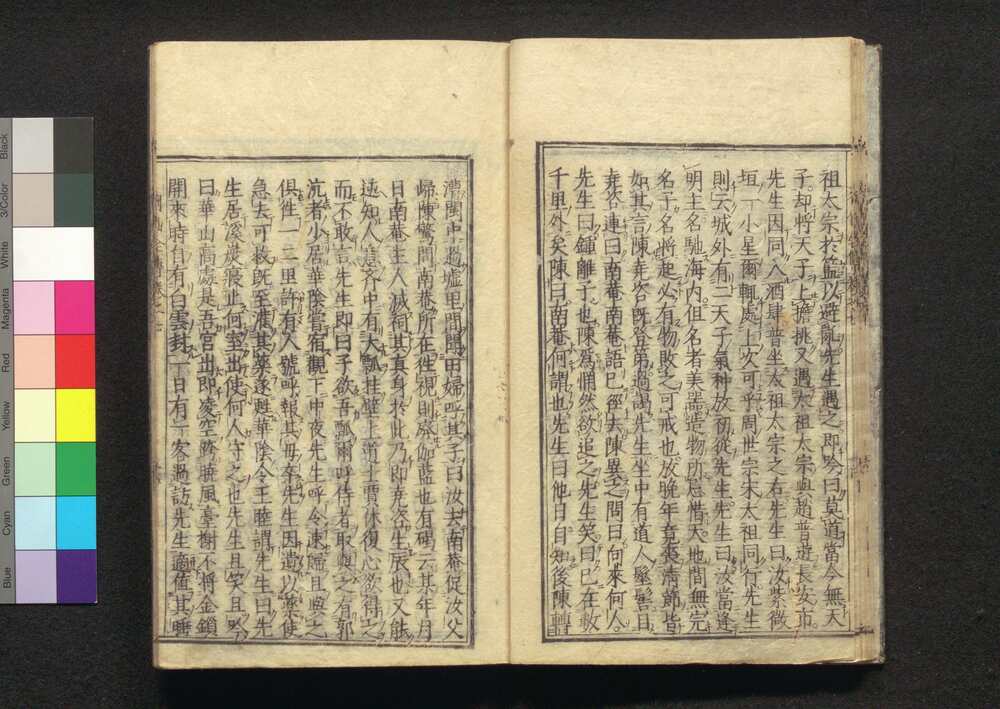 祖太宗於籃以避亂先生遇之即吟曰莫道當今無天
子却將天子上擔挑又遇太祖太宗與趙普遊長安市
先生因同入酒肆普坐太祖太宗之右先生曰汝紫微
垣一小星爾輒處上次可乎周世宗宋太祖同行先生
則云城外有二天子氣种放初從先生先生曰汝當逢
明主名馳海内但名者美器造物所忌惜天地間無完
名子名將起必有物敗之可戒也放晚年竟喪清節皆
如其言陳堯咨既登第過謁先生坐中有道人髽髻目
堯咨連曰南菴南菴語已徑去陳異之問曰向來何人
先生曰鍾離子也陳爲惘然欲追之先生笑曰已在數
千里外矣陳曰南菴何謂也先生曰他日自知後陳轉
漕閩中過墟里間聞田婦呼其子曰汝去南菴促汝父
歸陳驚問南菴所在往視則廢伽藍也有碑云某年月
日南菴主人滅祠其真身於此乃即堯咨生辰也又能
逆知人意齋中有大瓢挂壁上道士賈休復心欲得之
而不敢言先生即曰子欲吾瓢爾呼侍者取與之有郭
沆者少居華陰嘗宿觀下中夜先生呼令速歸且與之
俱往一二里許有人號呼報其母卒先生因遺以藥使
急去可救既至灌其藥遂甦華陰令王睦謂先生曰先
生居溪炭寢止何室出使何人守之也先生且笑且吟
曰華山高處是吾宮出即凌空跨曉風臺榭不將金鎖
閉來時自有白雲封一日有一客過訪先生適值其睡
Black
3/Color
White
Magenta
Red
Yellow
Green
Cyan
Blue